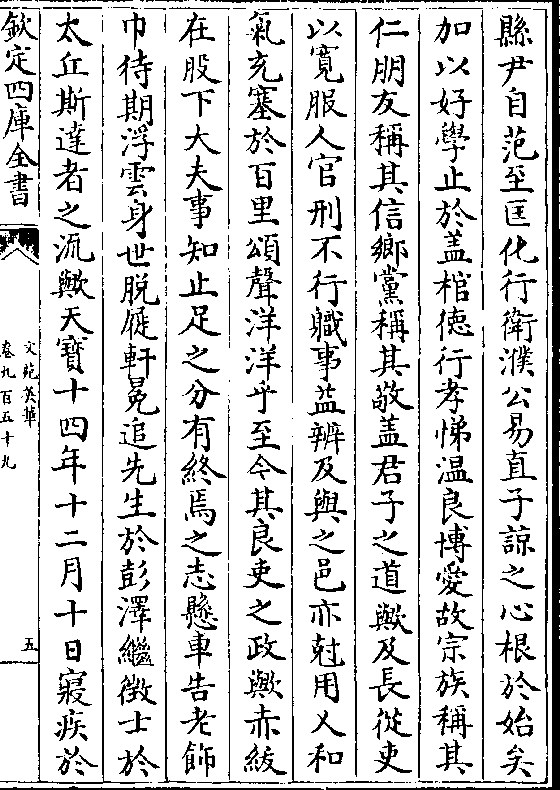 縣尹自范至匡化行衛濮公易直子諒之心根於始矣
加以好學止於盖棺徳行孝悌温良博愛故宗族稱其
仁朋友稱其信鄉黨稱其敬盖君子之道歟及長從吏
以寛服人官刑不行職事益辨及與之邑亦尅用乂和
氣充塞於百里頌聲洋洋乎至今其良吏之政歟赤紱
在股下大夫事知止足之分有終焉之志懸車告老飾
巾待期浮雲身世脱屣軒冕追先生於彭澤繼徴士於
太丘斯達者之流歟天寳十四年十二月十日寢疾於
欽定四庫全書
文苑英華
卷九百五十九
五